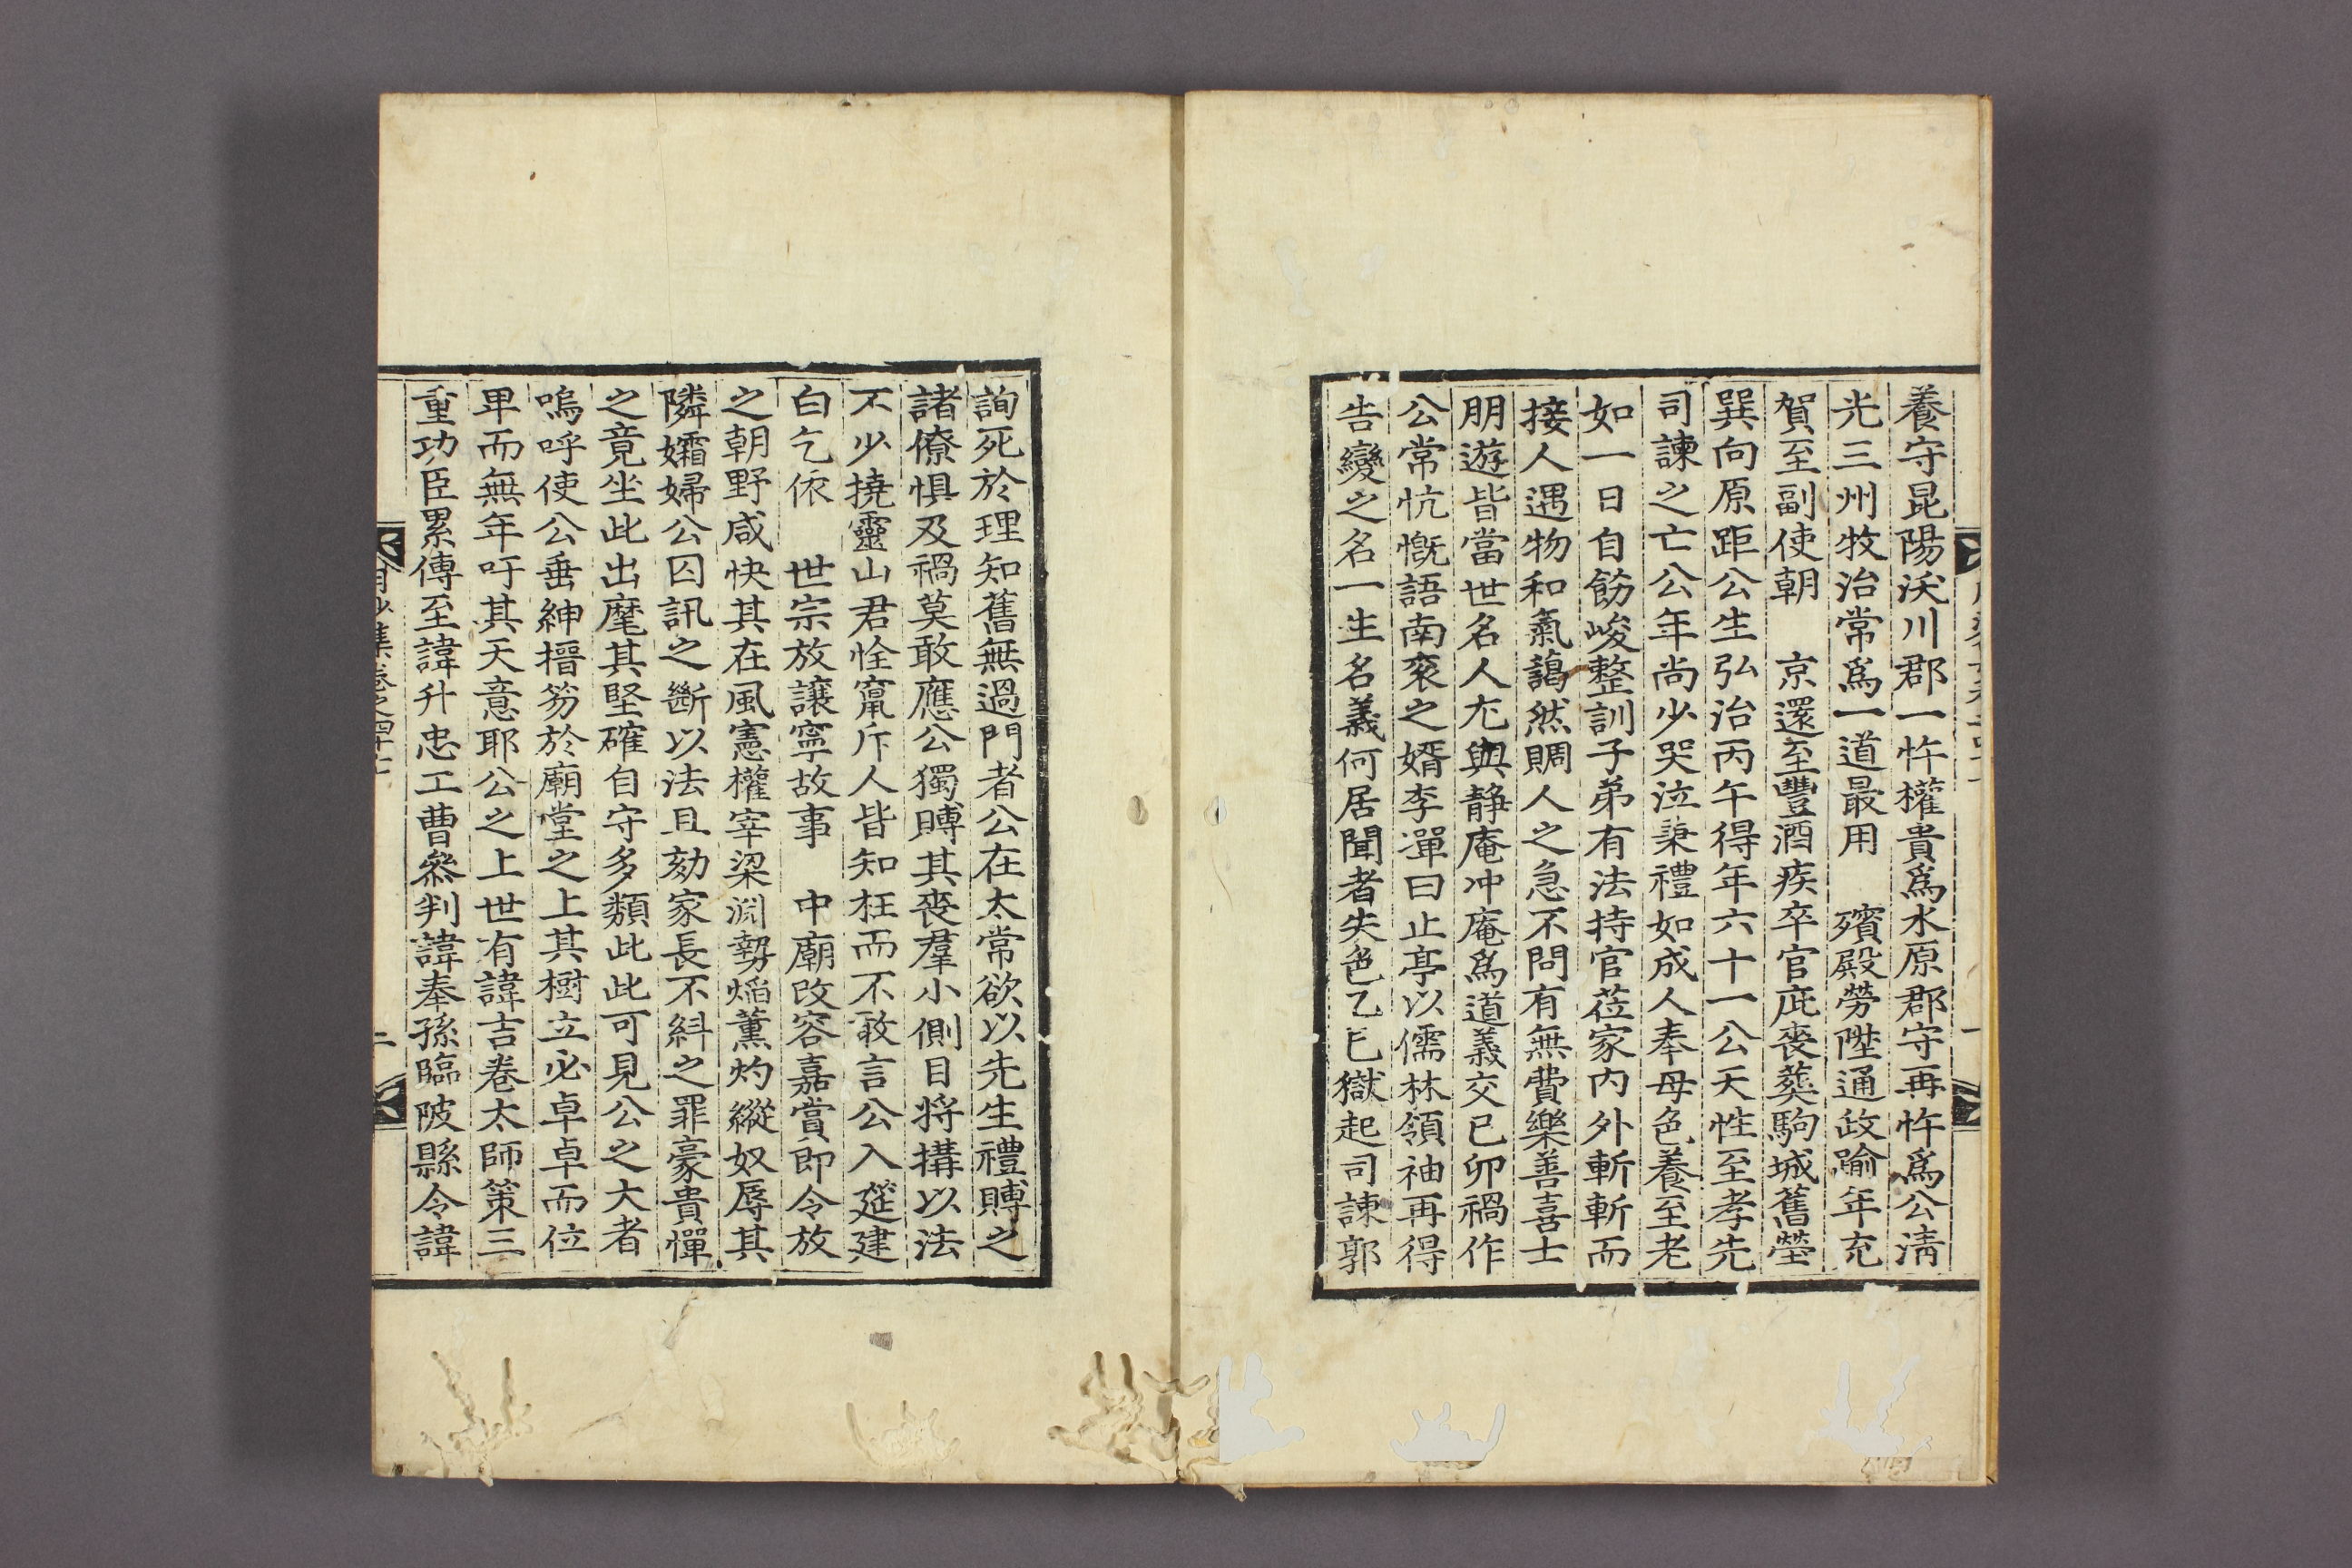 養守昆陽沃川郡一忤權貴爲水原郡守再忤爲公淸
光三州牧治常爲一道最用　殯殿勞陞通政踰年充
賀至副使朝　京還至豐酒疾卒官庇喪葬駒城舊塋
巽向原距公生弘治丙午得年六十一公天性至孝先
司諫之亡公年尚少哭泣秉禮如成人奉母色養至老
如一日自飭峻整訓子弟有法持官莅家內外斬斬而
接人遇物和氣藹然賙人之急不問有無費樂善喜士
朋遊皆當世名人尤與靜庵冲庵爲道義交已卯禍作
公常忼慨語南衮之婿李墠曰止亭以儒林領袖再得
告變之名一生名義何居聞者失色乙巳獄起司諫郭
詢死於理知舊無過門者公在太常欲以先生禮賻之
諸僚惧及禍莫敢應公獨賻其喪羣小側目將搆以法
不少撓靈山君恮竄斥人皆知枉而不敢言公入筵建
白乞依　世宗放讓寧故事　中廟改容嘉賞即令放
之朝野咸快其在風憲權宰梁淵勢焰薰灼縱奴辱其
隣孀婦公囚訊之斷以法且劾家長不糾之罪豪貴憚
之竟坐此出麾其堅確自守多類此此可見公之大者
嗚呼使公垂紳搢笏於廟堂之上其樹立必卓卓而位
卑而無年吁其天意耶公之上世有諱吉卷太師策三
重功臣累傳至諱升忠工曹叅判諱奉孫臨陂縣令諱
月沙集卷之四十七
二